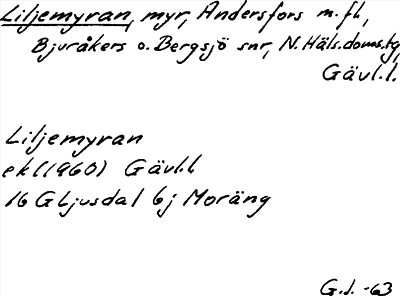 Liljemyran, myr, Andersfors m.fl.,
Bjuråkers o. Bergsjö snr, N. Häls.doms.tg,
Gävl.l.
Liljemyran
ekl(1960) Gävl.l
16 G Ljusdal 6j Moräng
G.J. -63